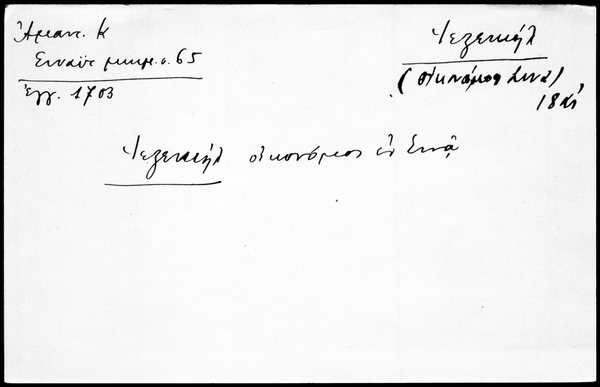 Ἀμαντ. Κ
Σιναϊτ. μνημ. σ. 65
Ἔγγ. 1703
Ἰεζεκιήλ
(οἰκονόμος Σινᾶ)
18 αἰ
Ἰεζεκιήλ οἰκονόμος ἐν Σινᾷ